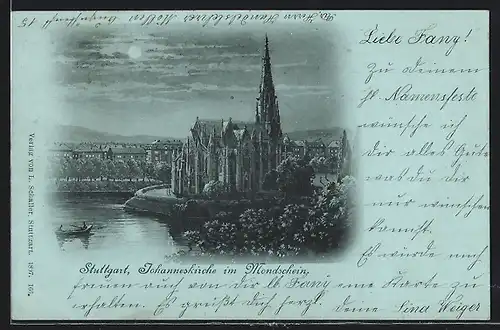 Liebe Fany!
Zu deinem
hl. Namensfeste
wünsche ich
dir alles Gute
was du dir
nur wünschen
kannst.
Es würde mich
freuen auch von dir lb. Fany eine Karte zu
erhalten. Es grüßt dich herzl. deine Lina Weiger
Stuttgart, Johanneskirche im Mondschein.
Verlag von L. Schaller, Stuttgart. 1897. 160.